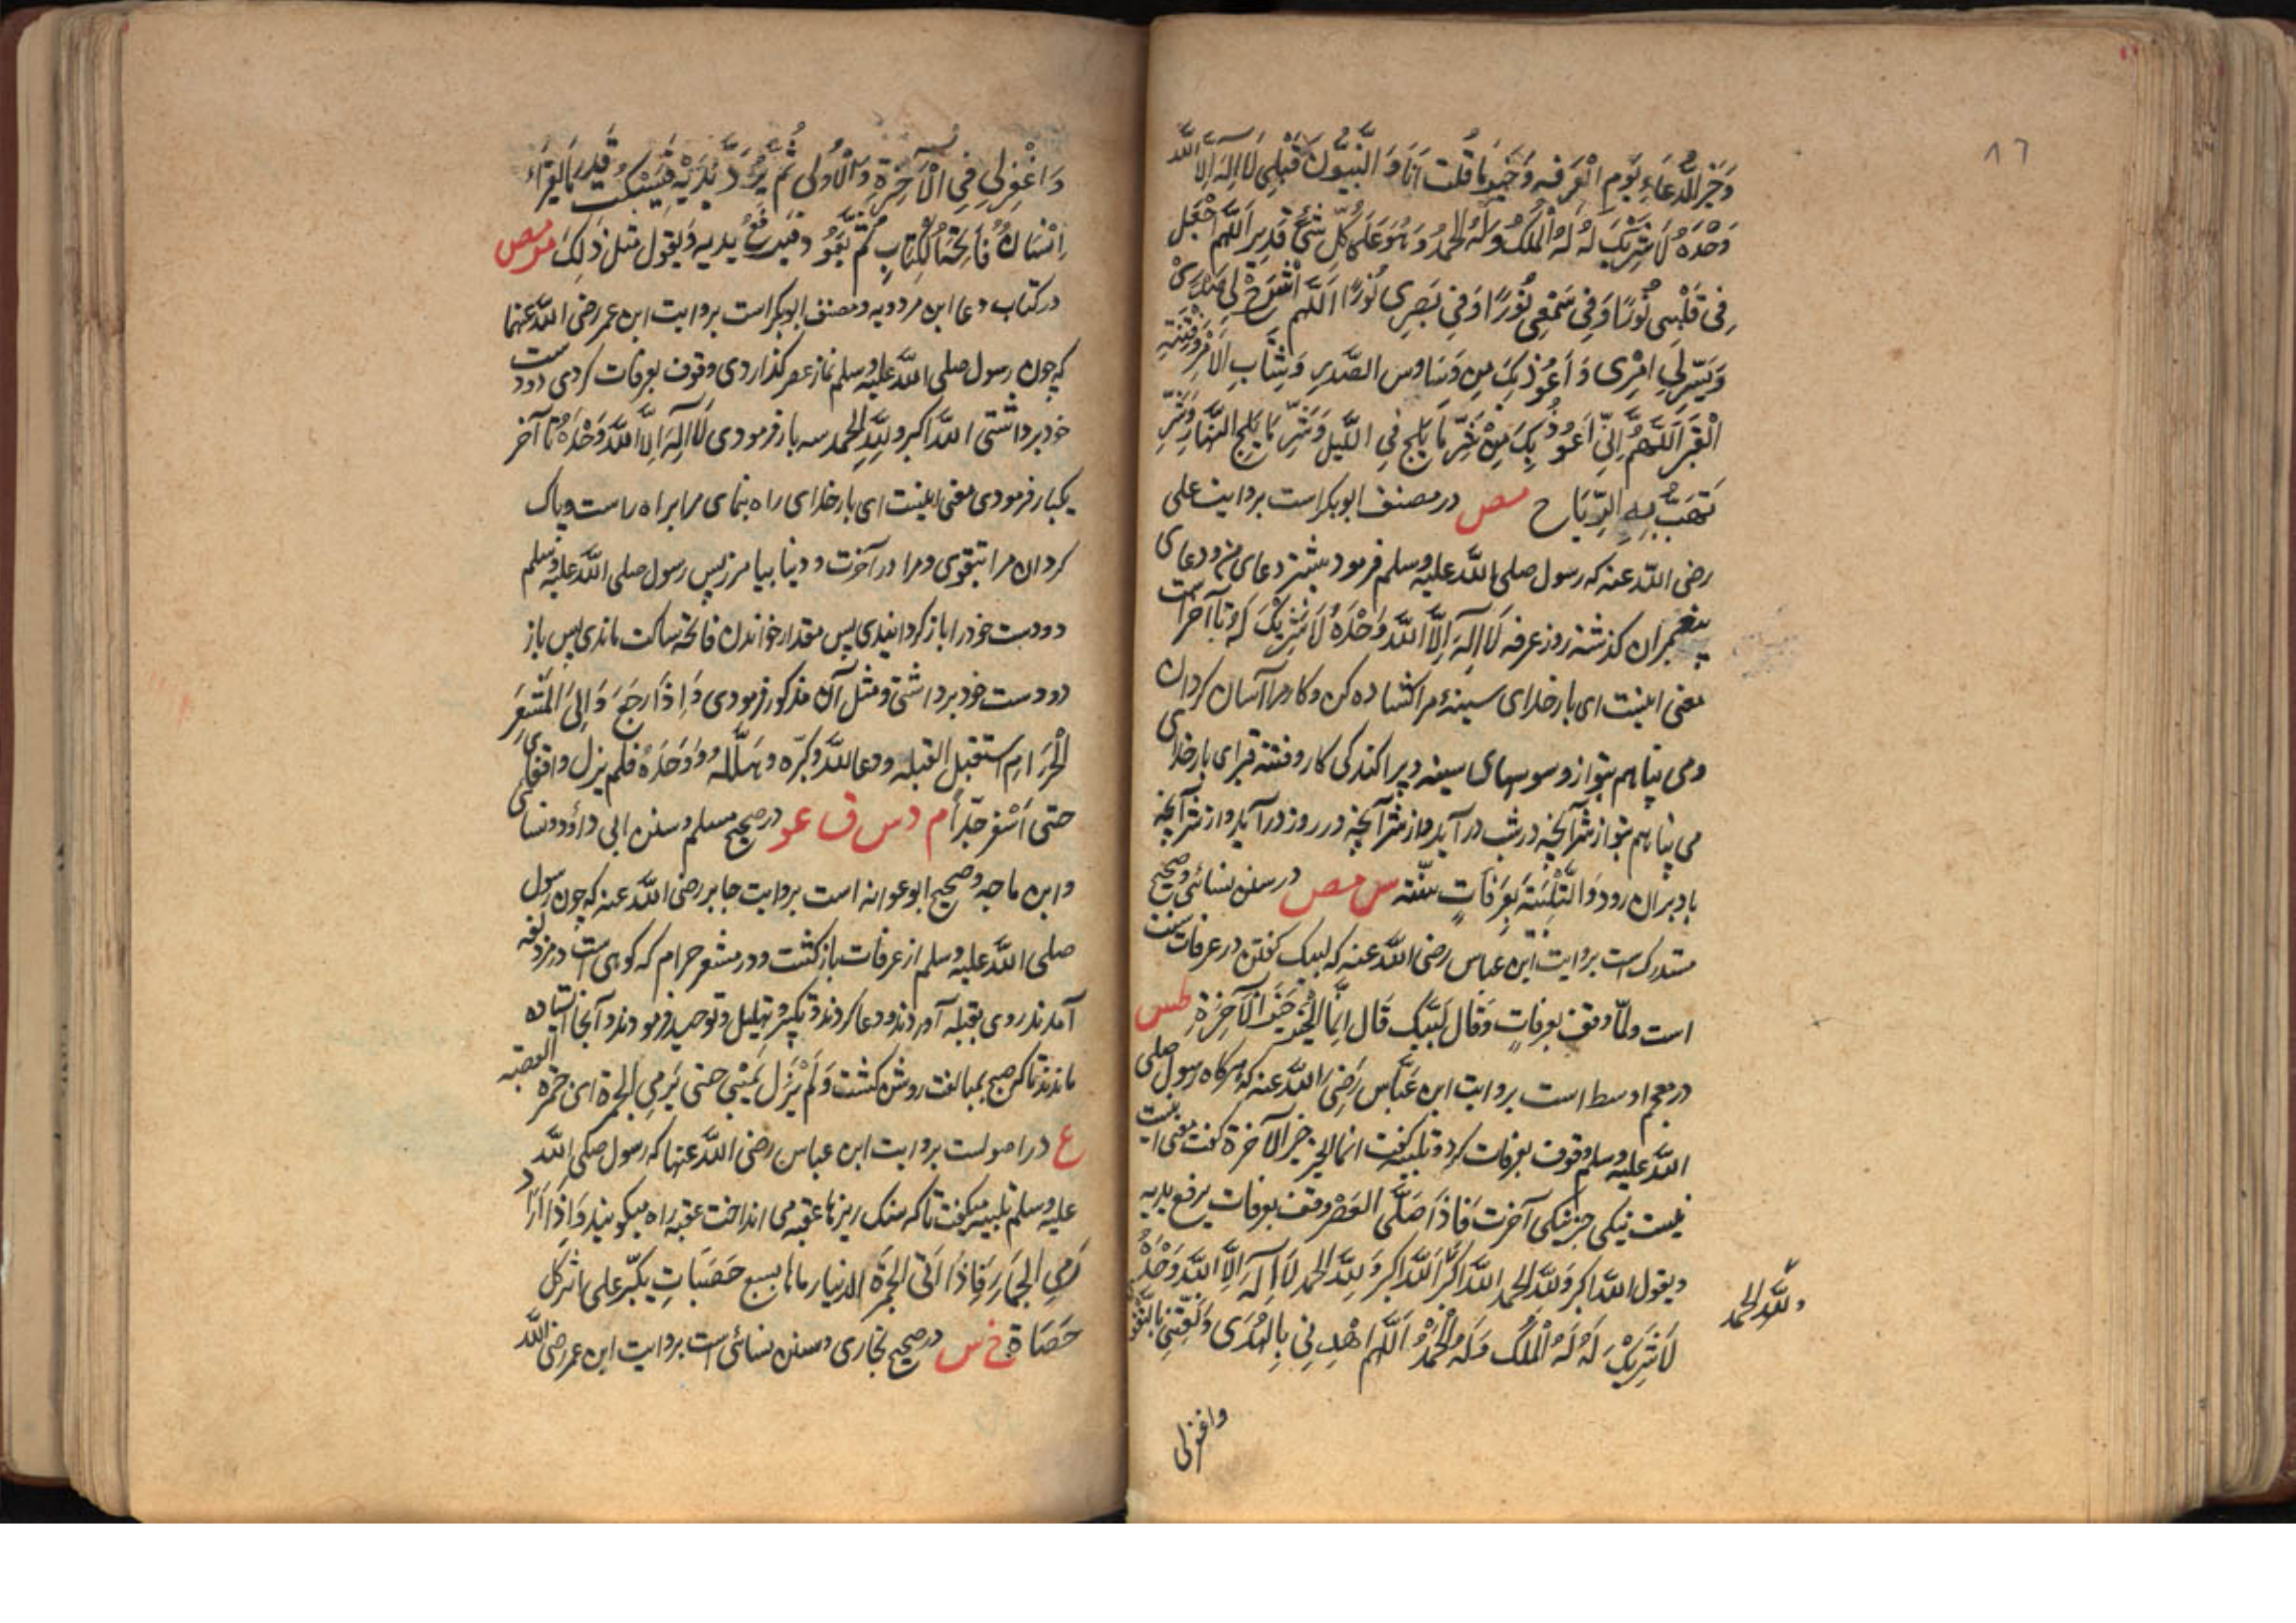 ٨٦
وَخَيْرُ الدُّعَاءِ يَوْمِ الْعَرَفه وَخَيْرُ مَا قُلت اَنَا وَ النَّبِيُّونَ قَبْلِى لَا اِلٰهَ اِلَّا اللّٰه
وَحْدَهُ لَا شَرِيْكَ لَهُ لَهُ الْمُلْكُ وَلَهُ الْحَمْدُ وَهُوَ عَلَى كُلِّ شَىْءٍ قَدِيْر اَللّٰهُمَّ اجْعَل
فِى قَلْبِى نُوْرًا وَفِى سَمْعِى نُوْرًا وَفِى بَصَرِى نُوْرًا اَللّٰهُم اشْرَحْ لِى صَدْرِى
وَيَسِّرْ لِى امْرِى وَ اَعُوْذُ بِكَ مِن وَسَاوِس الصَّدرِ وَشَتَابِ الاَمْرِ وَفِتْنَةِ
الْقَبْرِ اَللّٰهُمَّ اِنِّى اَعُوْذُ بِكَ مِنْ شَرِّ مَا يَلِج فِى اللَّيل وَشَرِّ مَا يَلِج النَّهَار وَشَرِّ
تَهُبُّ بِهِ الرِّيَاح مص در مصنف ابوبكر است بروايت على
رضى اللّٰه عنه كه رسول صلى اللّٰه عليه وسلم فرمود بيشتر دعاى من و دعاى
پيغمبران گذشته روز عرفه لَا اِلٰهَ اِلَّا اللّٰه وَحْدَهُ لَا شَرِيْكَ لَهُ تا آخر است
معنى اينست اى بار خداى سينۀ مرا كشاده كن و كار مرا آسان كردان
و مى پناهم بتو از وسوسهاى سينه و پراكندكى كار و فتنه قبر اى بار خداى
مى پناهم بتو از شر آنچه در شب در آيد و از شر آنچه در روز در آيد و از شر آنچه
باد بران رود وَالتَّلْبِيَة بِعَرَفَاتٍ سنّته س مص در سنن نسائى و صحيح
مستدرك است بروايت ابن عباس رضى اللّٰه عنه كه لبيك كفتن در عرفات سنت
است ولمّا وقف بعرفاتٍ وَقَال لَبَّيْك قَال اِنَّمَا الْخَيْر خَيْر الآخِرَةِ طس
در معجم اوسط است بروايت ابن عَبَّاس رَضِىَ اللّٰه عنه كه هركاه رسول صلى
اللّٰه عليه وسلم وقوف بعرفات كرد و تلبيه كفت انما الخير خير الآخرة كفت معنى اينست
نيست نيكى جز نيكى آخرت فَاذَا صَلَّى الْعَصْر وقف بعرفات يرفع يديه
ويقول اللّٰه اكبر وَلِلّٰه الحمد اللّٰه اكبر اللّٰه اكبر وَلِلّٰه الحمد لَا اِلٰهَ اِلَّا اللّٰه وَحْدَهُ
لَا شَرِيْكَ لَهُ لَهُ الْمُلْك وَلَهُ الْحَمْدُ اَللّٰهُم اهْدِنِى بِالهُدَى وَنَقِّنِى بِالتَّقْوى
وللّٰه الحمد
واغفرلى
وَاغْفِرْلِى فِى الْآخِرَةِ وَالْاُولٰى ثُمَّ يَرُدَّ يَدَيْهِ فَيَسْكُت قَدْرَ مَا يَقرَاءُ
اِنْسَانٌ فَاتِحَةَ الْكِتَابِ ثُمَّ يَعُوْدُ فَيَرْفَعُ يديه وَيقول مثل ذٰلِكَ مو مص
در كتاب دعا ابن مردويه و مصنف ابوبكر است بروايت ابن عمر رضى اللّٰه عنهما
كه چون رسول صلى اللّٰه عليه وسلم نماز عصر كذاردى وقوف بعرفات كردى دو دست
خود برداشتى اللّٰه اكبر وللّٰه الحمد سه بار فرمودى لَا اِلٰهَ اِلَّا اللّٰه وَحْدَهُ تا آخر
يكبار فرمودى معنى اينست اى بار خداى راه بنماى مرا براه راست و پاك
كردان مرا بتقوى و مرا در آخرت و دينا بيامرز پس رسول صلى اللّٰه عليه وسلم
دو دست خود را باز كردانيدى پس مقدار خواندن فاتحه ساكت ماندى پس باز
دو دست خود برداشتى و مثل آن مذكور فرمودى وَاِذَا رَجَعَ وَ اِلَى الْمَشْعَرِ
الْحَرَامِ استقبل القبله ودعا اللّٰه وَكبّره وهَلَّلَه وَوَحَّدَهُ فلم يزل واقفا
حتى اَسْفر جدّاً م د س ق عو در صحيح مسلم و سنن ابى داؤد و نسائى
و ابن ماجه و صحيح ابو عوانه است بروايت جابر رضى اللّٰه عنه كه چون رسول
صلى اللّٰه عليه وسلم از عرفات باز كشت و در مشعر حرام كه كوهى است در مزدلفه
آمدند روى بقبله آوردند و دعا كردند و تكبير و تهليل و توحيد فرمودند و آنجا ايستاده
ماندند تا كه صبح بمبالغت روشن كشت وَلَمْ يَزَل يُلَبِّى حتى يَرمِى الجمرة اى جمرة العقبه
ع در اصولست بروايت ابن عباس رضى اللّٰه عنهما كه رسول صلى اللّٰه
عليه وسلم تلبيه ميكفت تا كه سنك ريزها عقبه مى انداخت عقبه راه ميكويند وَاِذَا اَرَادَ
رَمى الجِمَار فَاِذَا اَتٰى الجمْرَة الدنيا رماها بسبع حَصَيَاتٍ يكبّر على اثر كل
حَصَاةٍ خ س در صحيح بخارى و سنن نسائى است بروايت ابن عمر رضى اللّٰه